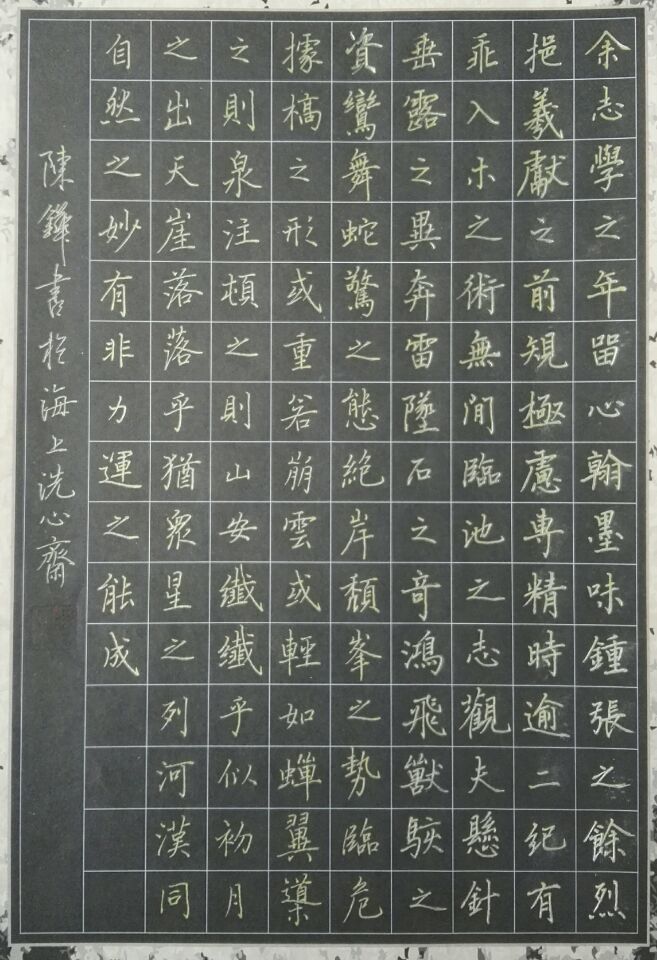 余志學之年留心翰墨味鍾張之餘烈
挹羲獻之前規極慮專精時逾二紀有
乖入木之術無間臨池之志觀夫懸針
垂露之異奔雷墜石之奇鴻飛獸駭之
資鸞舞蛇驚之態絶岸頹峯之勢臨危
據槁之形或重若崩雲或輕如蟬翼導
之則泉注頓之則山安纖纖乎似初月
之出天崖落落乎猶衆星之列河漢同
自然之妙有非力運之能成
陳鏵書於海上洗心齋